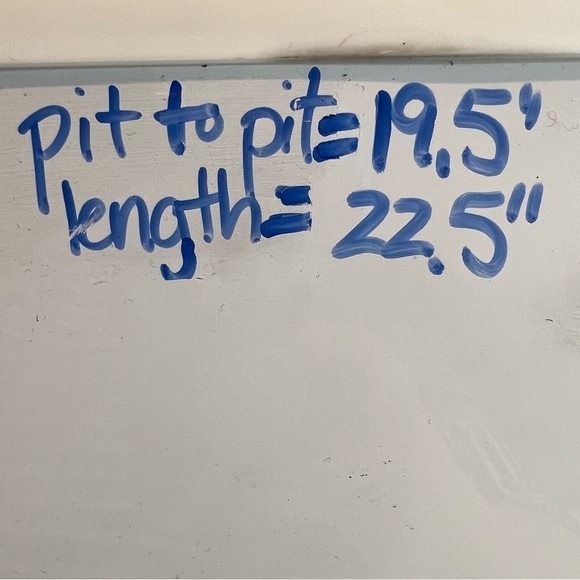 pit to pit=19.5'
length=22.5"